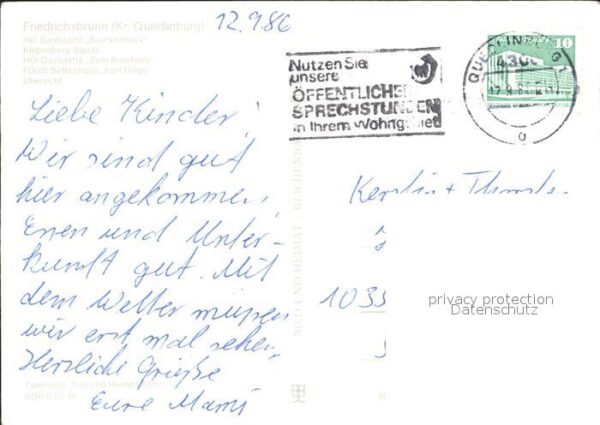 Friedrichsbrunn (Kr. Quedlinburg)
HO-Gaststätte „Brockenblick“
Klobenberg Baude
HO-Gaststätte „Zum Ramberg“
FDGB-Bettenhaus
Übersicht
12.9.86
Nutzen Sie
unsere
ÖFFENTLICHEN
SPRECHSTUNDEN
in Ihrem Wohngebiet
QUEDLINBURG 1
4300
10
Liebe Kinder!
Wir sind gut
hier angekommen,
Essen und Unter-
kunft gut. Mit
dem Wetter müssen
wir erst mal sehen,
Herzliche Grüße
Eure Mami
BILD UND HEIMAT REICHENBACH
Kerstin + Thorste
1035
privacy protection
Datenschutz
Farbfotos: Bild und Heimat